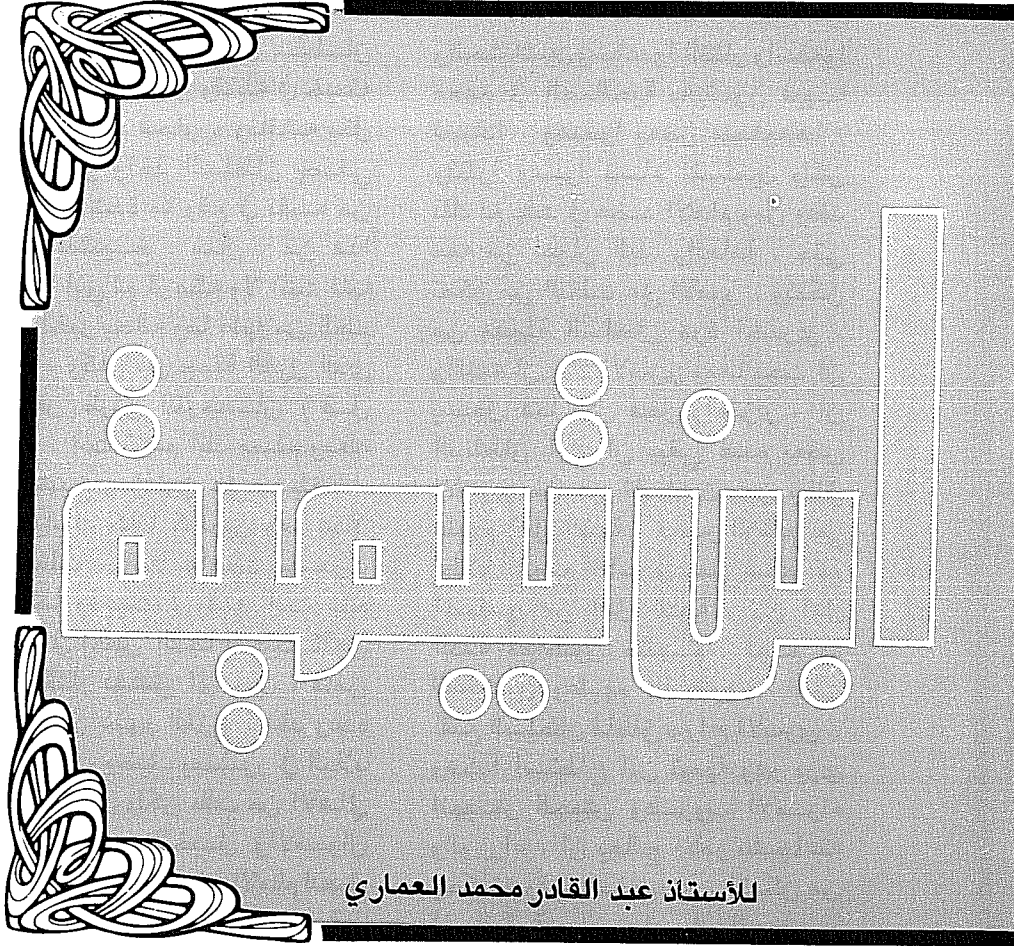 ابن تيمية
للأستاذ عبد القادر محمد العماري